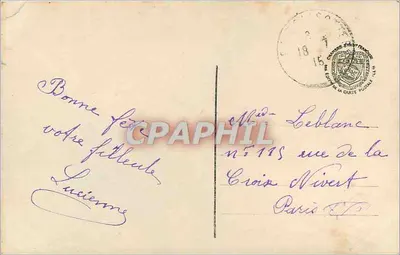 Bonne fête
votre filleule
Lucienne
Leblanc
n° 115 rue de la
Croix Nivert
Paris
18 7
15
CPAPHIL